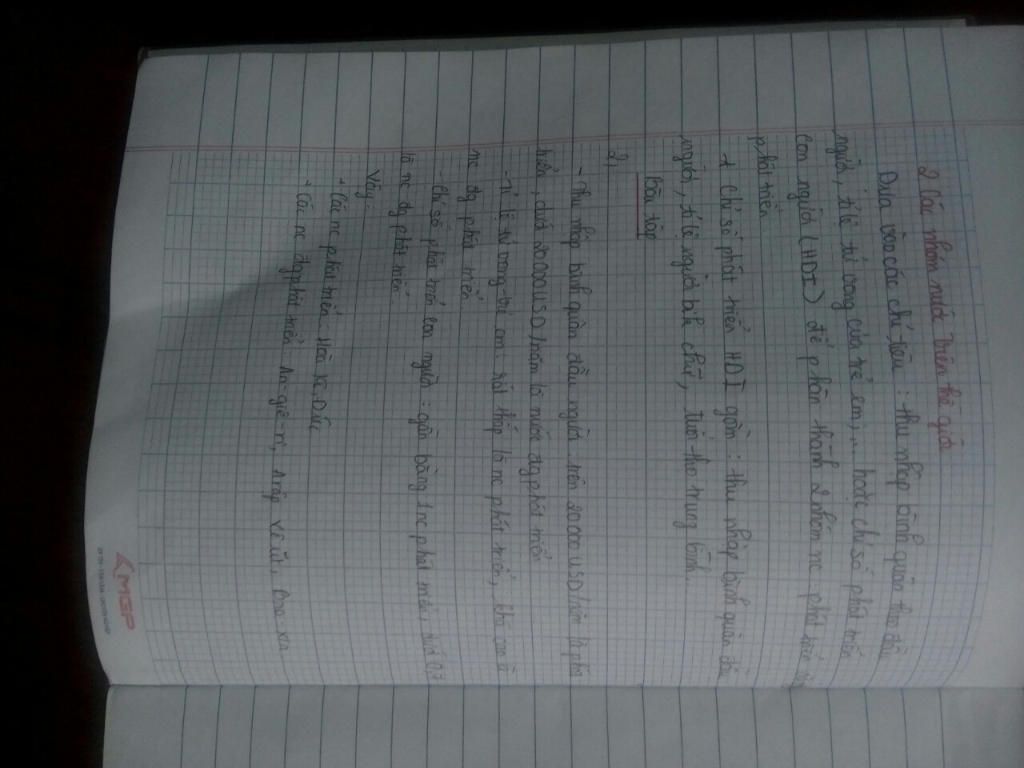 2 Các nhóm nước trên thế giới
Dựa vào các chỉ tiêu : thu nhập bình quân theo đầu
người, tỉ lệ tử vong của trẻ em,... hoặc chỉ số phát triển
con người (HDI) để phân thành 2 nhóm nc phát triển
phát triển
+ Chỉ số phát triển HDI gồm : thu nhập bình quân
người, tỉ lệ người biết chữ, tuổi thọ trung bình...
Bài tập
2.
- Thu nhập bình quân đầu người trên 20000 USD/năm là
triển, dưới 20000 USD/năm là nước đg phát triển
- Tỉ lệ tử vong trẻ em: rất thấp là nc phát triển, khá cao là
nc đg phát triển
- Chỉ số phát triển con người : gần bằng 1 nc phát triển, dưới 0,7
là nc đg phát triển
Vậy:
+ Các nc phát triển: Hoa Kì, Đức
+ Các nc đg phát triển: An-giê-ri, Arập Xê út, Bra-xin
MGP